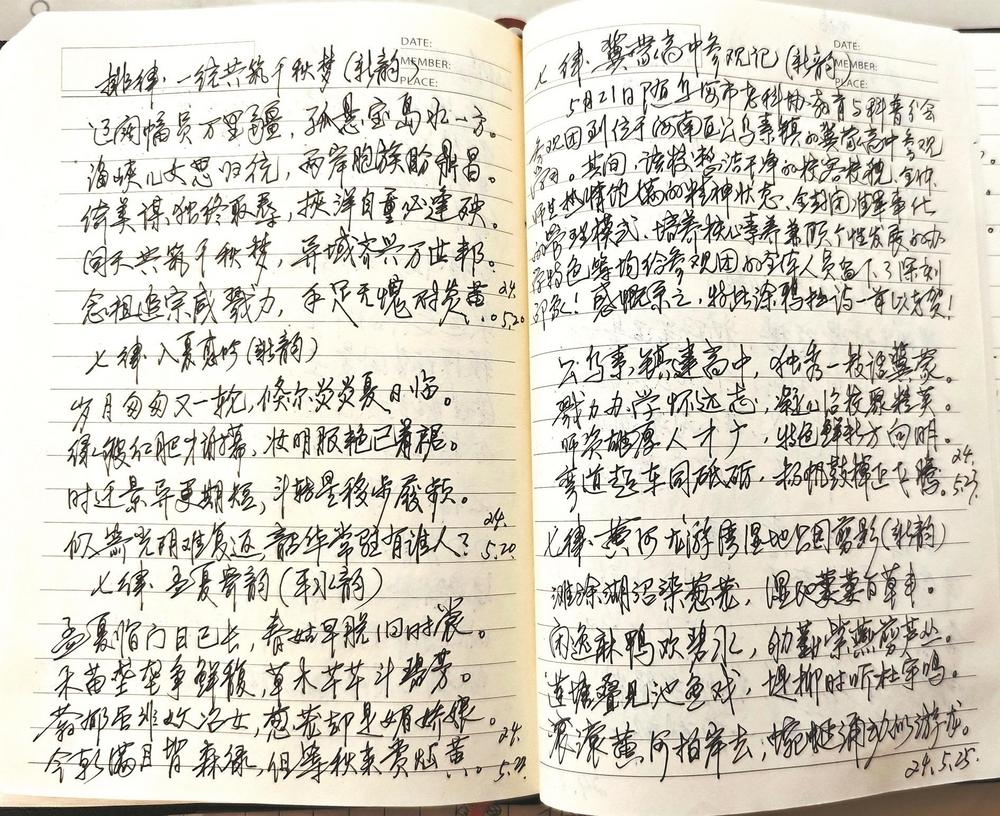 DATE:
MEMBER:
PLACE:
排律·一统共筑千秋梦(新韵)
辽阔幅员万里疆，孤悬宝岛水一方。
海峡儿女思归统，两岸胞族盼鼎昌。
倚美谋独终取辱，挟洋自重必逢殃。
同天共筑千秋梦，异域齐兴万世邦。
念祖追宗咸戮力，手足无愧对炎黄。
24.5.20
七律·入夏感吟(新韵)
岁月匆匆又一轮，倏尔炎炎夏日临。
绿皱红肥才谢幕，妆明服艳已着裙。
时迁景异更期短，斗转星移步履频。
似箭光阴难复返，韶华常驻有谁人？
24.5.20.
七律·孟夏寄韵(平水韵)
孟夏临门日已长，春姑早脱旧时裳。
禾苗垄垄争鲜馥，草木芊芊斗碧芳。
蓊郁岂非妆冶女，葱茏却是媚娇娘。
今朝满目皆森绿，但等秋来贵灿黄。
24.5.23.
DATE:
MEMBER:
PLACE:
七律·冀蒙高中参观记(新韵)
5月21日随乌海市老科协教育与科普分会
参观团到位于河南区公乌素镇的冀蒙高中参观
学习。其间，该校整洁干净的校容校貌、全体
师生热情饱满的精神状态、全封闭准军事化
的管理模式、培养核心素养兼顾个性发展的办
学特色等均给参观团的全体人员留下了深刻
印象！感慨系之，特此涂鸦拙诗一首以为贺！
公乌素镇建高中，独秀一枝誉冀蒙。
戮力办学怀远志，凝心治校聚精英。
师资雄厚人才广，特色鲜乾方向明。
弯道超车同砥砺，扬帆鼓棹正飞腾。
24.5.23.
七律·黄河龙游湾湿地公园剪影(新韵)
滩涂湖沼染葱茏，湿地萋萋百草丰。
闲逸麻鸭欢碧水，勤勤紫燕剪苍丛。
莲塘叠见池鱼戏，堤柳时听杜宇鸣。
滚滚黄河拍岸去，蜿蜒涌动似游龙。
24.5.25.